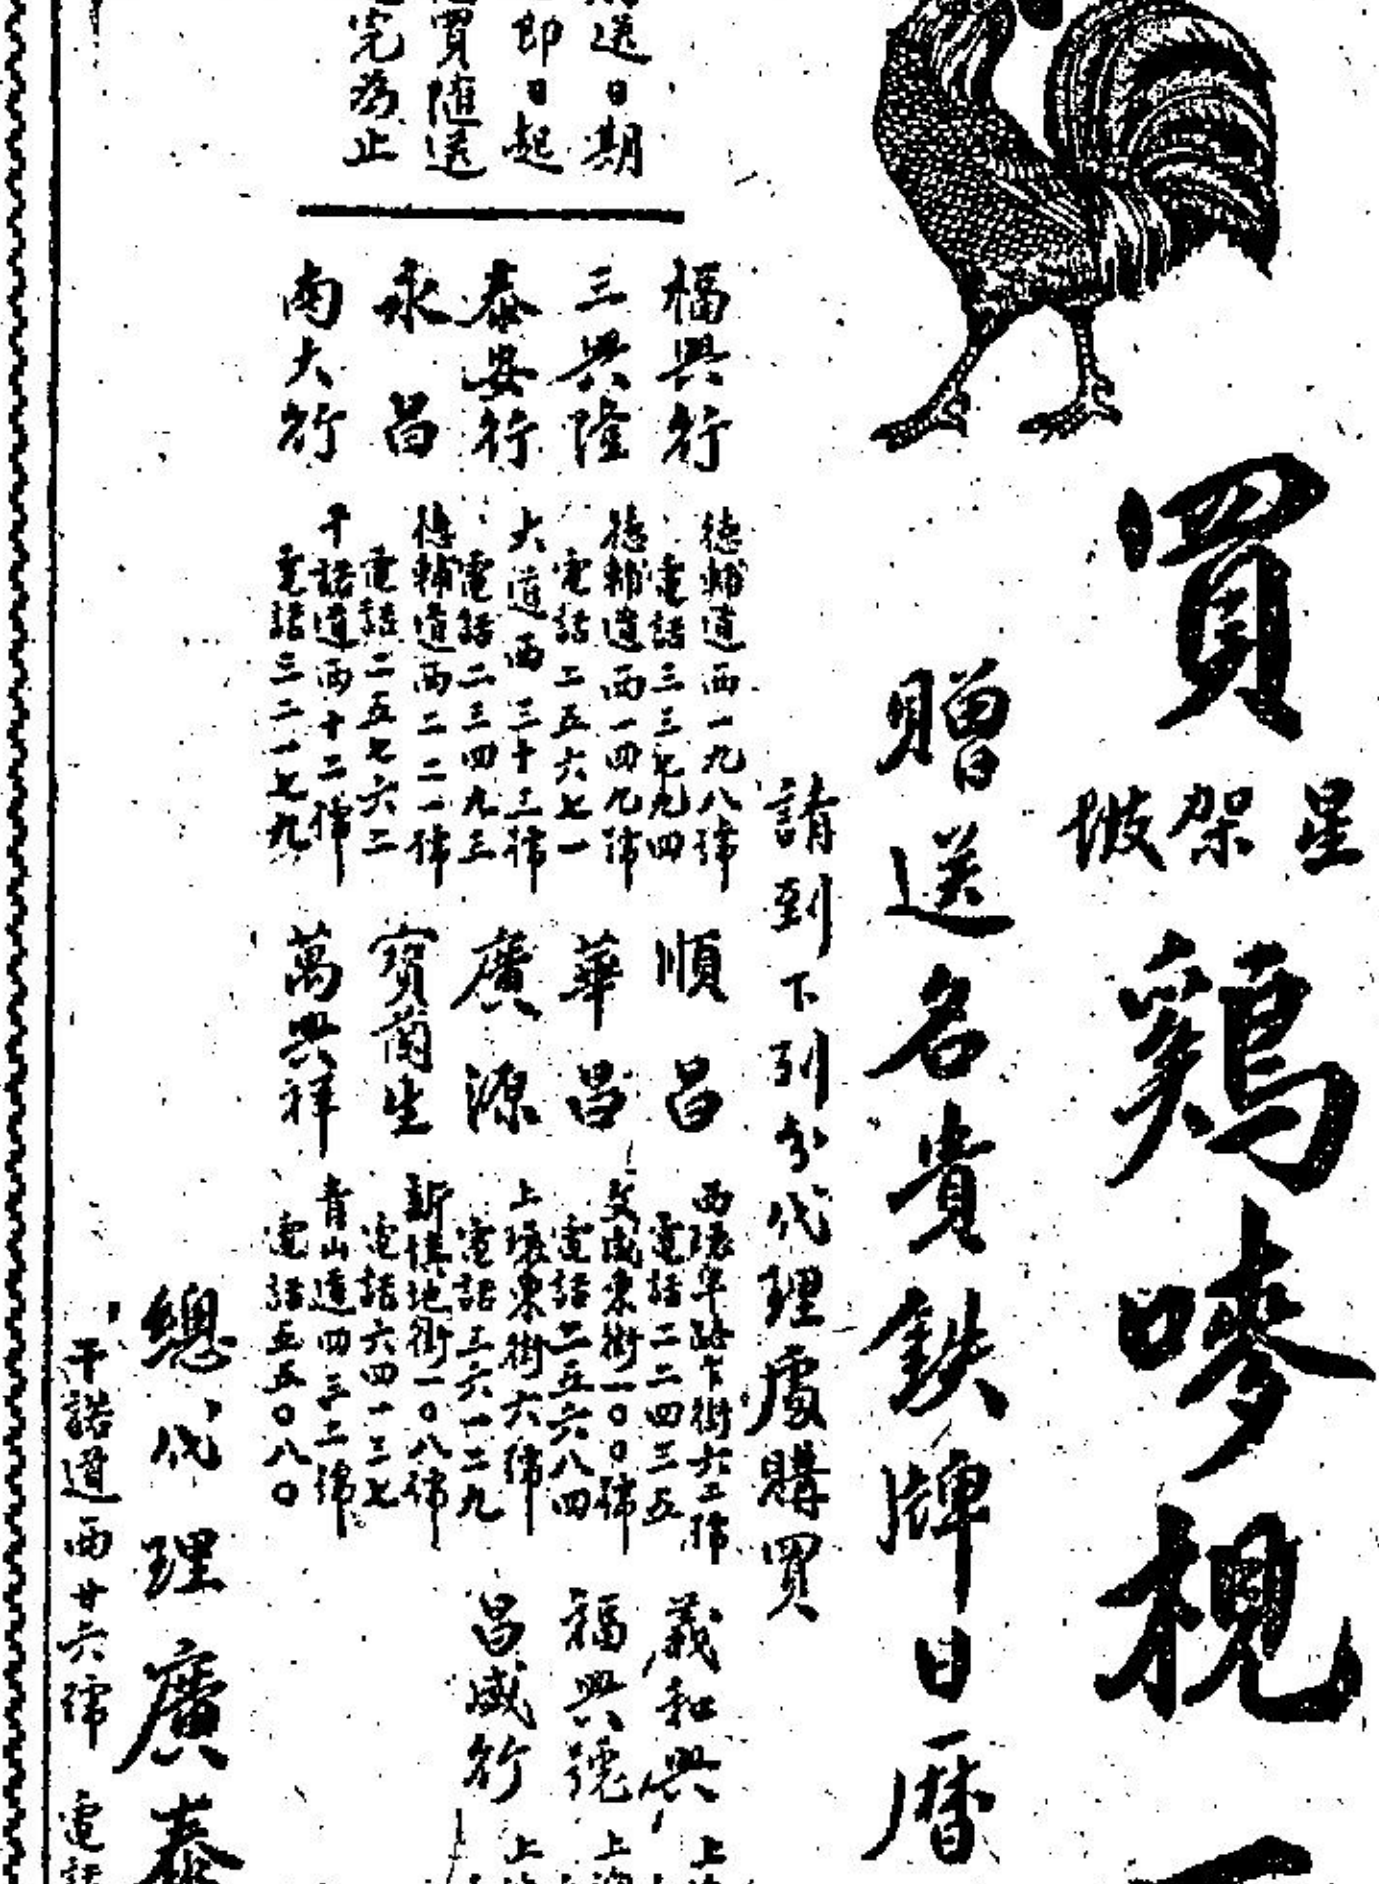 買鷄嘜梘一
星架坡
贈送名貴鉄牌日曆
請到下列分代理處購買
送日期
即日起
買隨送
完為止
福興行
德輔道西一九八號
電話三三七九四
三興隆
德輔道西一四九號
電話二五六七一
泰安行
大道西三十三號
電話二三四九三
永昌
德輔道西二二一號
電話二五七六二
南大行
干諾道西十二號
電話三二一七九
順昌
西環卑路乍街六二號
電話二二四三五
華昌
文咸東街一〇〇號
電話二五六八四
廣源
上環東街六號
電話三六一二九
寶蘭生
新填地街一〇八號
電話六四一三七
萬興祥
青山道四三二號
電話五五〇八〇
義和興
上
福興號
上
昌盛行
上
總代理廣泰
干諾道西廿六號 電話